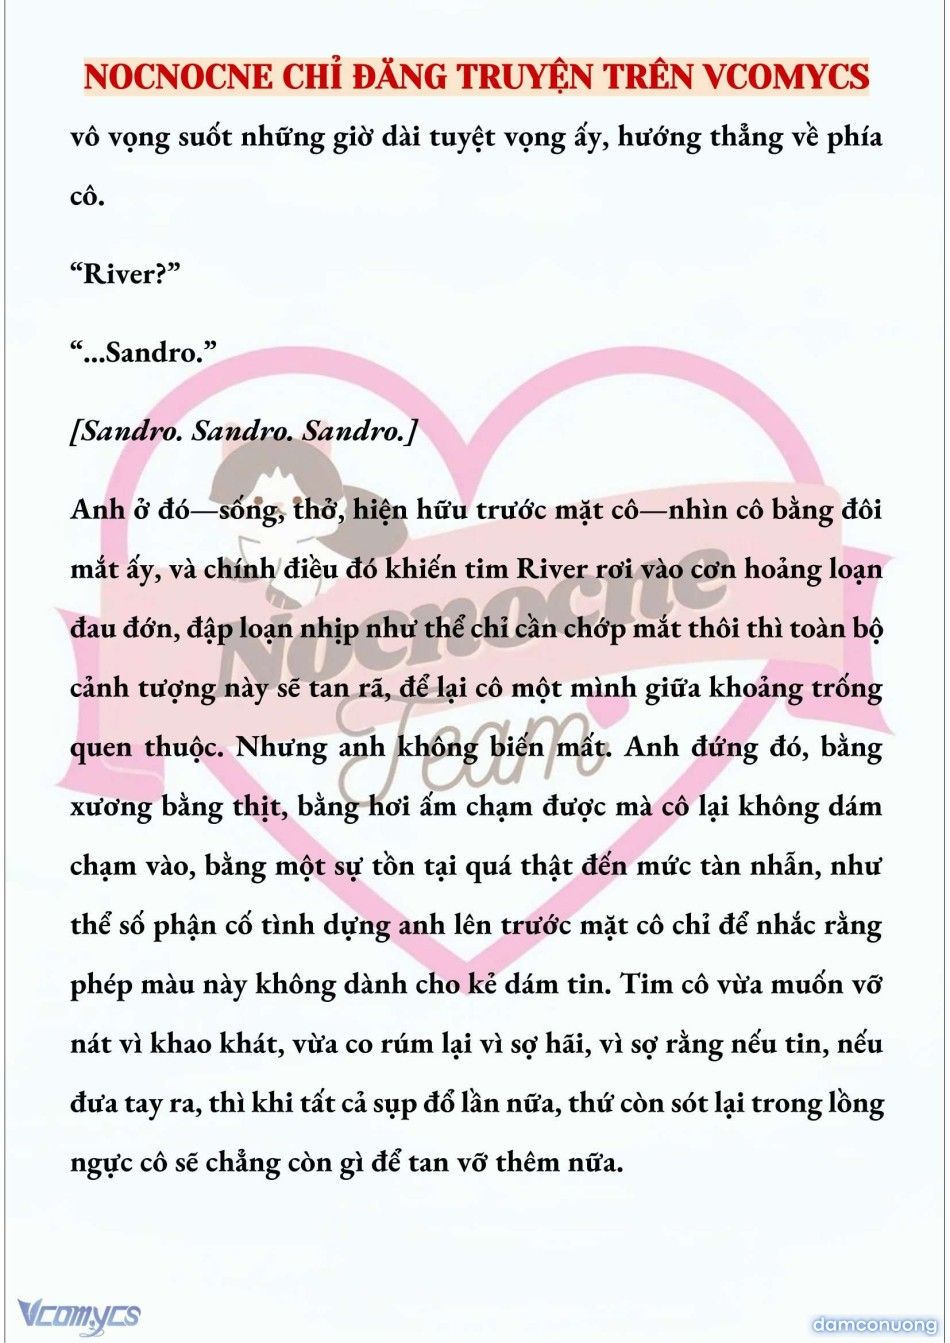 NOCNOCNE CHỈ ĐĂNG TRUYỆN TRÊN VCOMYCS
vô vọng suốt những giờ dài tuyệt vọng ấy, hướng thẳng về phía
cô.
“River?”
“...Sandro.”
[Sandro. Sandro. Sandro.]
Anh ở đó—sống, thở, hiện hữu trước mặt cô—nhìn cô bằng đôi
mắt ấy, và chính điều đó khiến tim River rơi vào cơn hoảng loạn
đau đớn, đập loạn nhịp như thể chỉ cần chớp mắt thôi thì toàn bộ
cảnh tượng này sẽ tan rã, để lại cô một mình giữa khoảng trống
quen thuộc. Nhưng anh không biến mất. Anh đứng đó, bằng
xương bằng thịt, bằng hơi ấm chạm được mà cô lại không dám
chạm vào, bằng một sự tồn tại quá thật đến mức tàn nhẫn, như
thể số phận cố tình dựng anh lên trước mặt cô chỉ để nhắc rằng
phép màu này không dành cho kẻ dám tin. Tim cô vừa muốn vỡ
nát vì khao khát, vừa co rúm lại vì sợ hãi, vì sợ rằng nếu tin, nếu
đưa tay ra, thì khi tất cả sụp đổ lần nữa, thứ còn sót lại trong lồng
ngực cô sẽ chẳng còn gì để tan vỡ thêm nữa.
Nocnocne
Team
Vcomycs
damconuong